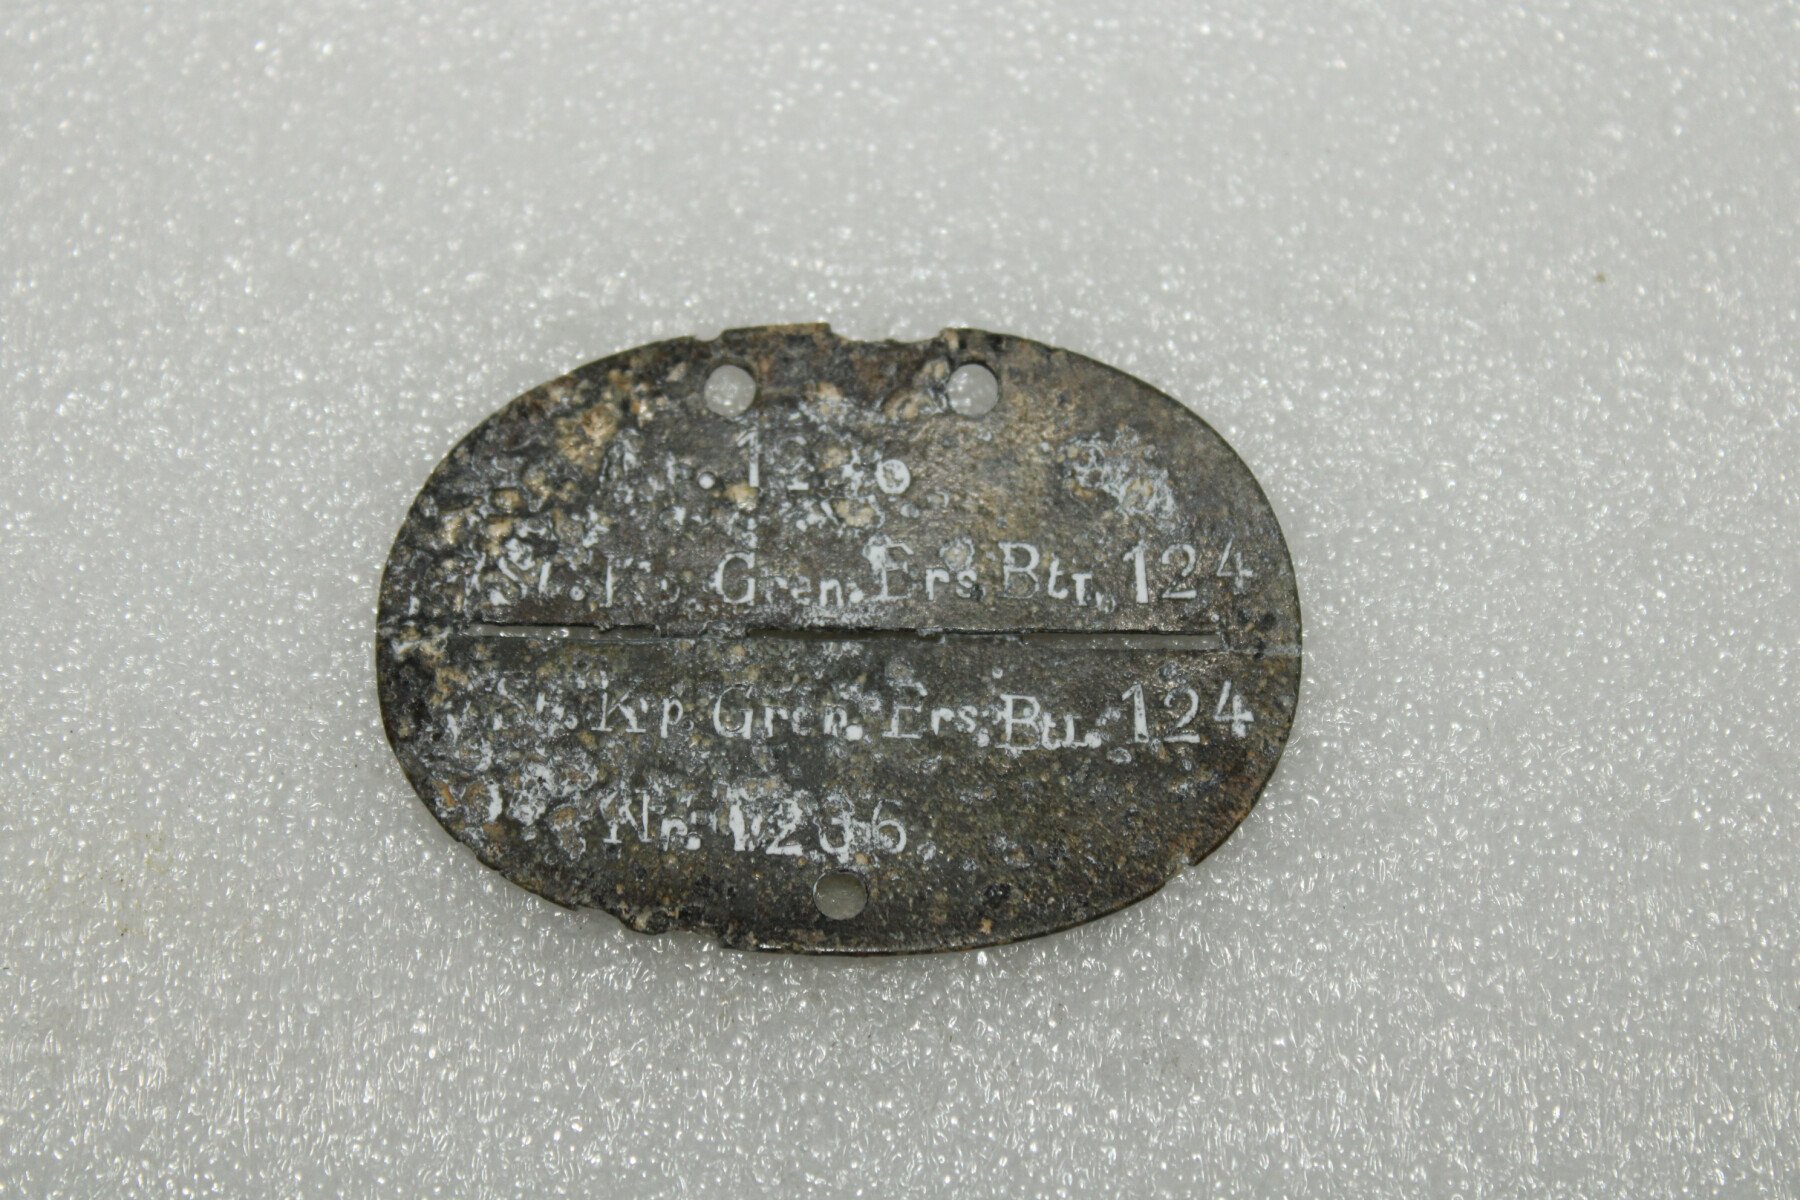 Nr. 1236
St. Kp. Gren. Ers. Btr. 124
St. Kp. Gren. Ers. Btr. 124
Nr. 1236